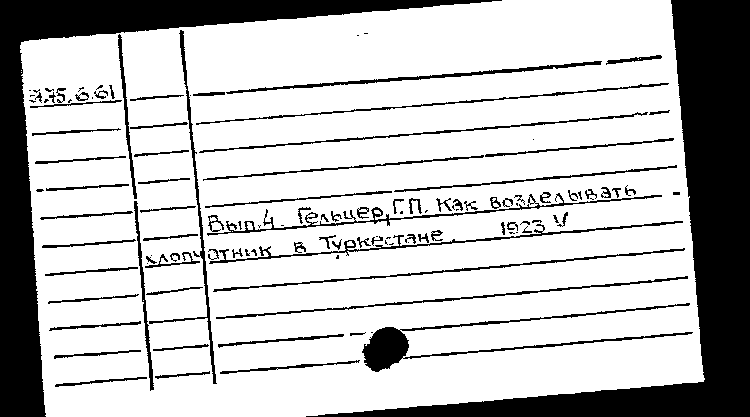 Вып.4. Гельцер, Г.П. Как возделывать
хлопчатник в Туркестане. 1923 V